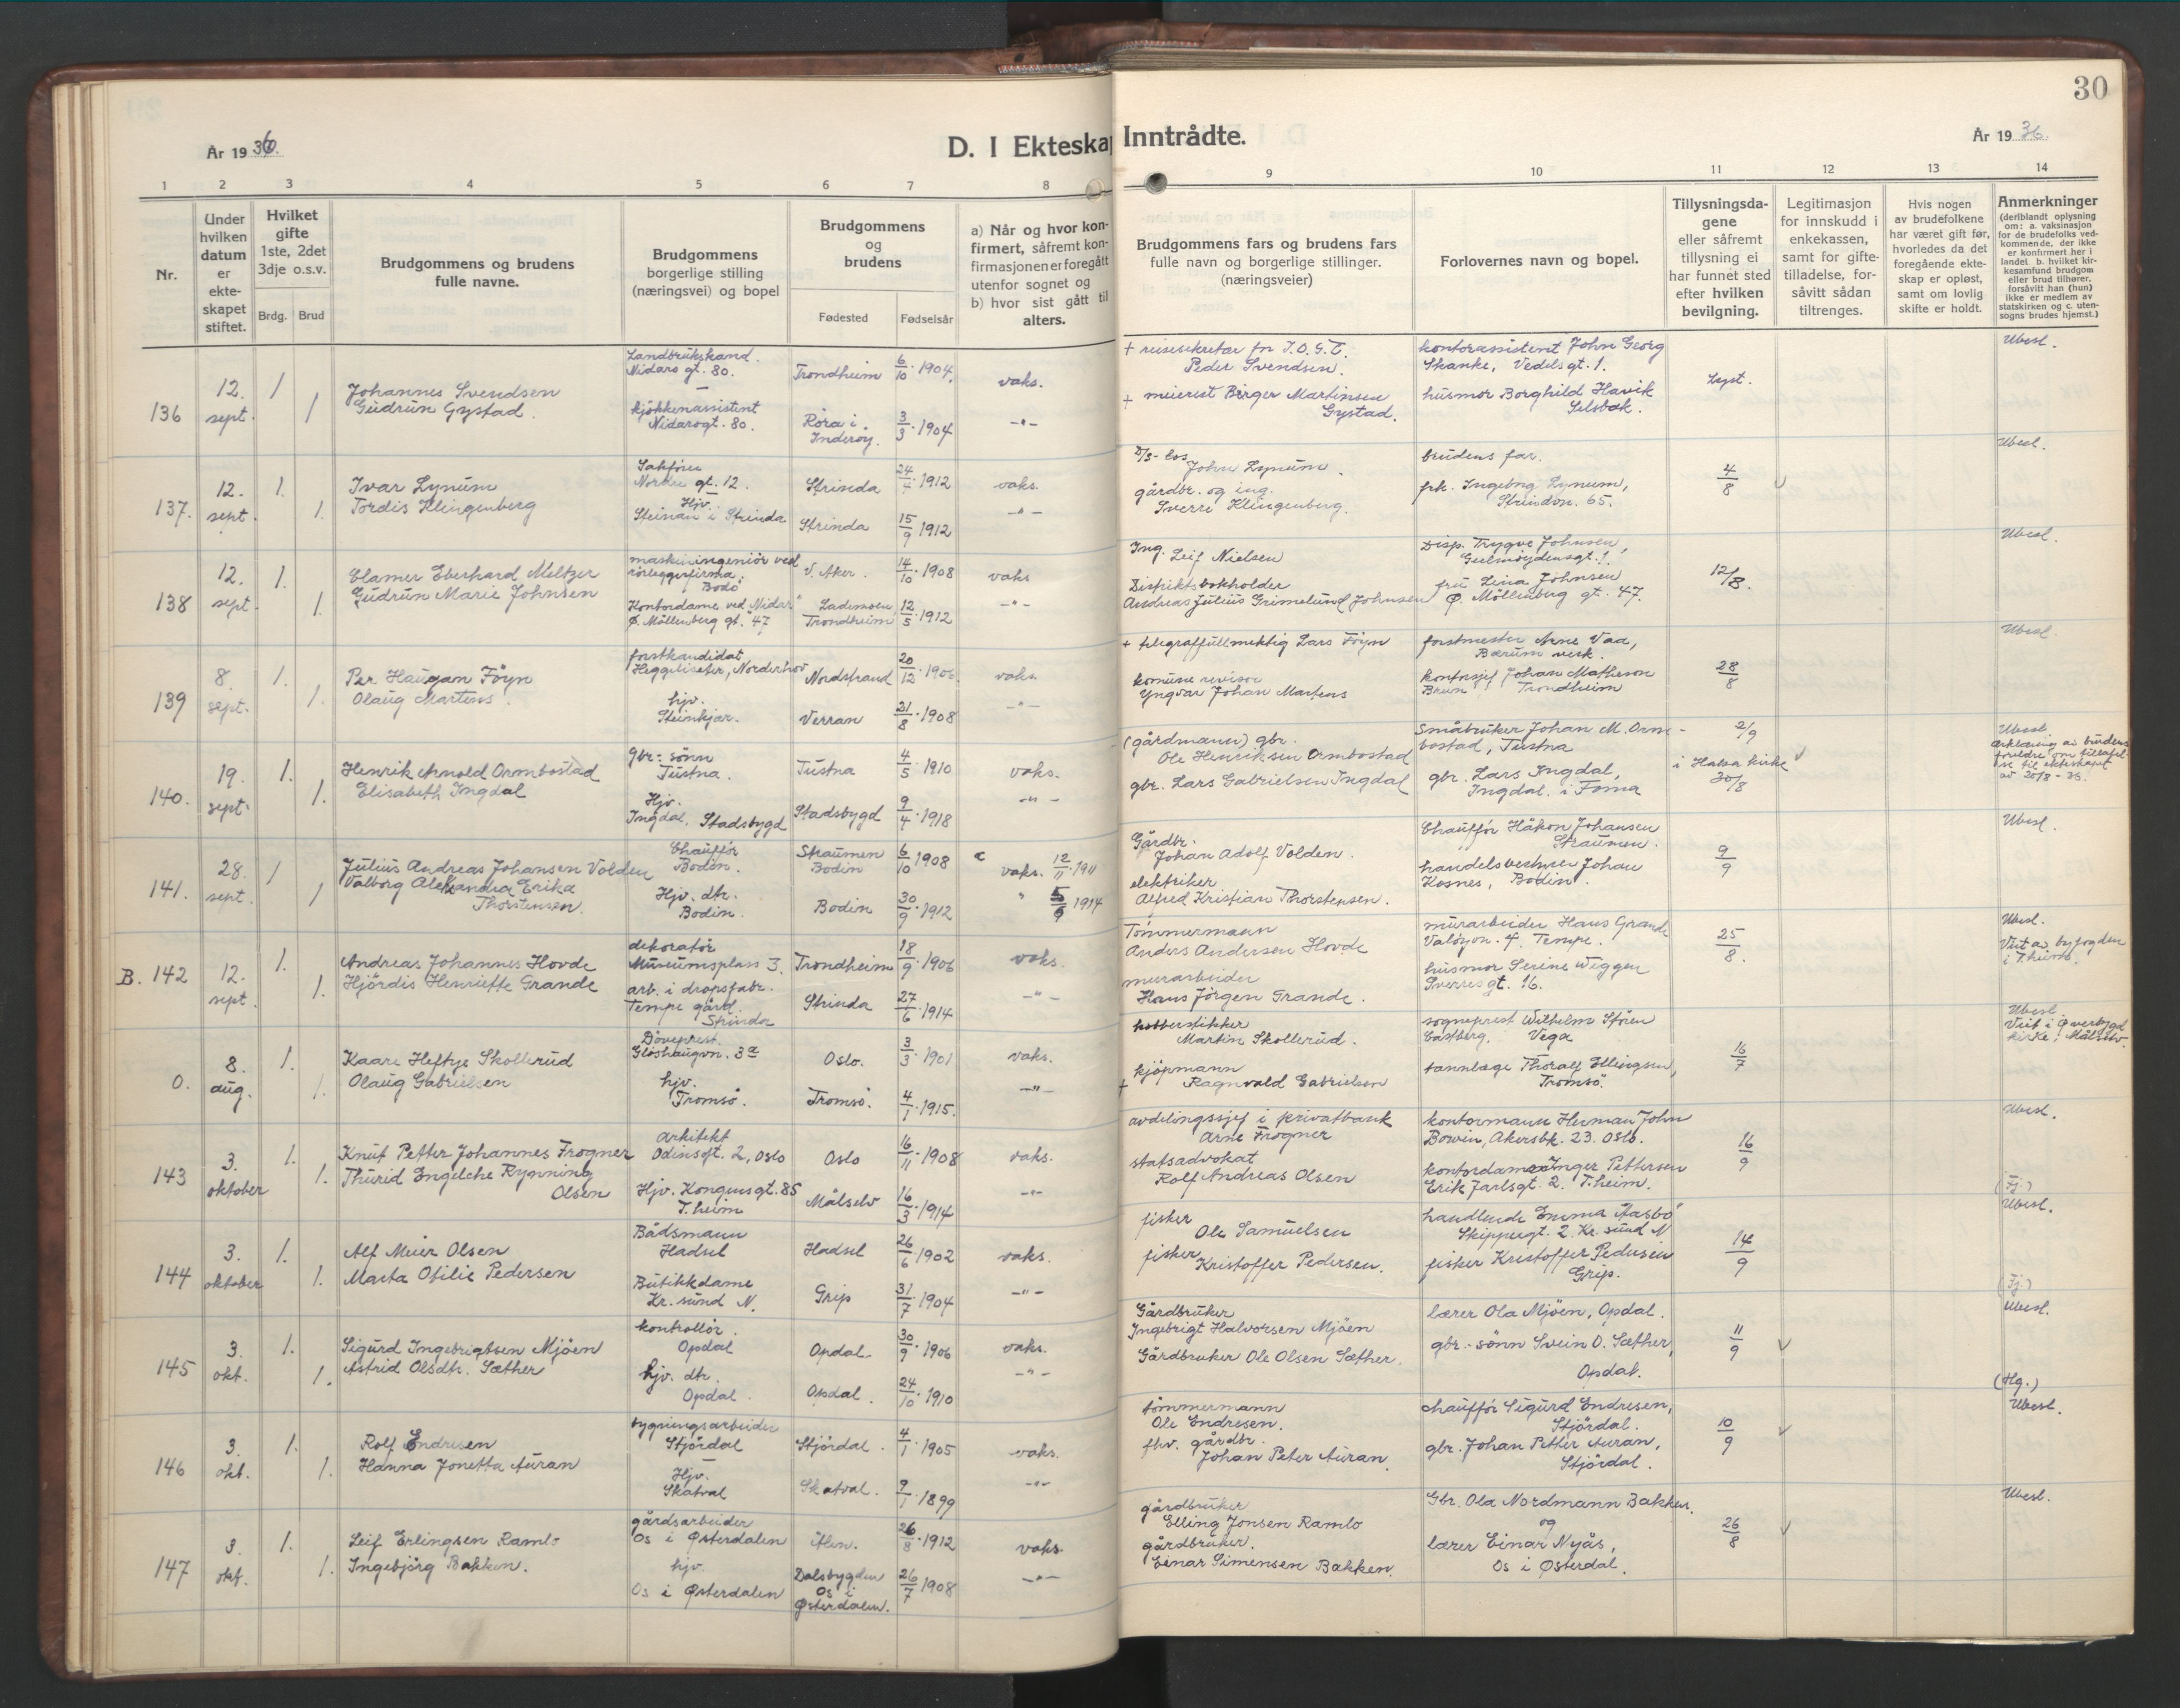 År 1936.
D. I Ekteskap
1 2 3 4 5 6 7 8
Nr.
Under hvilken datum er ekteskapet stiftet.
Hvilket gifte 1ste, 2det 3dje o.s.v.
Brdg. Brud
Brudgommens og brudens fulle navne.
Brudgommens borgerlige stilling (næringsvei) og bopel
Brudgommens og brudens
Fødested Fødselsår
a) Når og hvor konfirmert, såfremt konfirmasjonen er foregått utenfor sognet og b) hvor sist gått til alters.
136 12. sept. 1 1
Johannes Svendsen
Gudrun Gystad.
Landbrukskand.
Nidaros gt. 80.
kjøkkenassistent
Nidarosgt. 80.
Trondheim 6/10 1904.
Röra i Inderøy. 3/3 1904
vaks.
137. 12. sept. 1. 1.
Ivar Lynum
Tordis Klingenberg
Nordre gt. 12.
Hjv.
Steinan i Strinda
Strinda 1912
Strinda 15/9 1912
vaks.
138 12. sept. 1. 1.
Elamer Eberhard Meltzer
Gudrun Marie Johnsen
maskiningeniör ved
rörleggerfirma.
Bodö
Kontordame ved "Nidar"
Ø. Möllenberg gt. 47
V. Aker. 14/10 1908
Lademoen Trondheim 12/5 1912
vaks
139 8. sept. 1. 1.
Per Haugan Föyn
Olaug Martens.
forstkandidat
Heggeliseter, Norderhov
hjv.
Steinkjær.
Nordstrand 20/12 1906.
Verran 21/8 1908
vaks.
140. 19. sept. 1. 1.
Henrik Arnold Ormbostad
Elisabeth Ingdal
gbr.-sønn
Tustna.
Hjv.
Ingdal, Stadsbygd
Tustna 4/5 1910
Stadsbygd 9/4 1918
vaks.
141. 28. sept. 1 1
Julius Andreas Johansen Volden
Valborg Aleksandra Erika
Thorstensen.
Chaufför
Bodin.
Hjv. dtr.
Bodin.
Straumen Bodin 6/10 1908
Bodin 30/9 1912
vaks. 12/11 1911
" 5/9 1914
B. 142 12. sept. 1. 1.
Andreas Johannes Hovde
Hjördis Henriette Grande
dekoratör
Museumsplass 3.
arb. i dropsfabr.
Tempe gård.
Strinda
Trondheim 18/9 1906
Strinda 27/6 1914
vaks.
0. 8. aug. 1. 1.
Kaare Heftye Skollerud
Olaug Gabrielsen
Döveprest.
Glöshaugvn. 3a
hjv.
Tromsö.
Oslo. 3/3 1901
Tromsö. 4/1 1915.
vaks.
143 3. oktober 1. 1.
Knut Petter Johannes Frogner
Thurid Engelche Rynning
Olsen
arkitekt
Odinsgt. 2, Oslo
Hjv. Kongensgt. 85
T.heim
Oslo 16/11 1908
Målselv 16/3 1914
vaks.
144 3. oktober 1. 1.
Alf Meier Olsen
Marta Otilie Pedersen
Bådsmann
Hadsel
Butikkdame
Kr. sund N.
Hadsel 26/6 1902
Grip 31/7 1904
vaks.
145 3. okt. 1. 1.
Sigurd Ingebrigtsen Mjöen
Astrid Olsdtr. Sæther
kontrollör.
Opdal
hjv. dtr.
Opdal.
Opdal. 30/9 1906
Opdal. 24/10 1910
vaks.
146 3. okt. 1. 1.
Rolf Endresen
Hanna Jonetta Auran
bygningsarbeider
Stjördal
Hjv.
Skatval
Stjördal. 4/1 1905
Skatval. 9/1 1899
vaks.
147 3. okt. 1. 1.
Leif Erlingsen Ramlo
Ingebjörg Bakken.
gårdsarbeider
Os i Østerdalen
hjv.
Os i Østerdalen
Ålen. 26/8 1912
Dalsbygden Os i Østerdalen. 26/7 1908
vaks.
30
Inntrådte.
År 1936.
9 10 11 12 13 14
Brudgommens fars og brudens fars fulle navn og borgerlige stillinger. (næringsveier)
Forlovernes navn og bopel.
Tillysningsdagene eller såfremt tillysning ei har funnet sted efter hvilken bevilgning.
Legitimasjon for innskudd i enkekassen, samt for giftetilladelse, forsåvitt sådan tiltrenges.
Hvis nogen av brudefolkene har været gift før, hvorledes da det foregående ekteskap er opløst, samt om lovlig skifte er holdt.
Anmerkninger (deriblandt oplysning om: a. vaksinasjon for de brudefolks vedkommende, der ikke er konfirmert her i landet b. hvilket kirkesamfund brudgom eller brud tilhører, forsåvitt han (hun) ikke er medlem av statskirken og c. utensogns brudes hjemst.)
+ reisesekretær for I.O.G.T.
Peder Svendsen.
+ meierist Birger Martinsen
Gystad.
kontorassistent John Georg
Skanke, Vedelsgt. 1.
husmor Borghild Havik
Selsbak.
Lyst.
Ubesl.
John Lynum.
gårdbr. og ing.
Sverre Klingenberg.
brudens far.
frk. Ingeborg Lynum,
Strindvn. 65.
4/8
Ubesl.
Ing. Leif Nielsen
Distriktsbokholder
Andreas Julius Grimelund Johnsen
Disp. Trygve Johnsen,
fru Lina Johnsen
Ø. Möllenberg gt. 47.
12/8.
Ubesl.
+ telegraffullmektig Lars Föyn
komune revisor
Yngvar Johan Martens
forstmester Arne Vaa,
Bærum verk.
kontorsjef Johan Matheson
Brun, Trondheim
28/8
Ubesl.
(gårdmann) gbr.
Ole Henriksen Ormbostad
gbr. Lars Gabrielsen Ingdal
Småbruker Johan M. Orm-
bostad, Tustna
gbr. Lars Ingdal,
Ingdal.
2/9
i Halsa kirke
30/8
Ubesl.
erklæring av brudens
foreldre om tillatel-
se til ekteskapet
av 20/8-36.
Gårdbr.
Johan Adolf Volden.
elektriker
Alfred Kristian Thorstensen.
Chaufför Håkon Johansen
Straumen.
handelsbestyrer Johan
Kosnes, Bodin.
9/9
Ubesl.
Tömmermann
Anders Andersen Hovde
murarbeider
Hans Jörgen Grande.
murarbeider Hans Grande
Valöyvn. 4. Tempe.
husmor Serine Wiggen
Sverresgt. 16.
25/8.
Ubesl.
Viet av byfogden
i T.heim.
kobberstikker
Martin Skollerud.
+ kjöpmann
Ragnvald Gabrielsen
sogneprest Wilhelm Stören
Vega
tannlæge Thoralf Ellingsen,
Tromsö.
16/7
Ubesl.
Viet i Øverbygd
kirke, Målselv.
avdelingssjef i privatbank
Arne Frogner
statsadvokat
Rolf Andreas Olsen
kontormann Herman John
Bowin, Akersbk. 23. Oslo.
kontordame Inger Pettersen
Erik Jarlsgt. 2. T.heim.
16/9
Ubesl.
fisker
Ole Samuelsen
fisker
Kristoffer Pedersen.
handlende Emma Aasbö
Skippergt. 2. Kr. sund N
fisker Kristoffer Pedersen
Grip.
14/9
(Fj.)
Ubesl.
Gårdbruker
Ingebrigt Halvorsen Mjöen
Gårdbruker Ole Olsen Sæther.
lærer Ola Mjöen, Opdal.
gbr.-sönn Svein O. Sæther,
Opdal.
11/9
(Fj.)
Ubesl.
tömmermann
Ole Endresen.
fhv. gårdbr.
Johan Peter Auran
chaufför Sigurd Endresen,
Stjördal.
gbr. Johan Petter Auran,
Stjördal.
10/9
(Hg.)
Ubesl.
gårdbruker
Elling Jonsen Ramlo
gårdbruker.
Einar Simensen Bakken.
Gbr. Ola Nordmann Bakken
og
lærer Einar Nyås,
Os i Østerdal.
26/8
Ubesl.